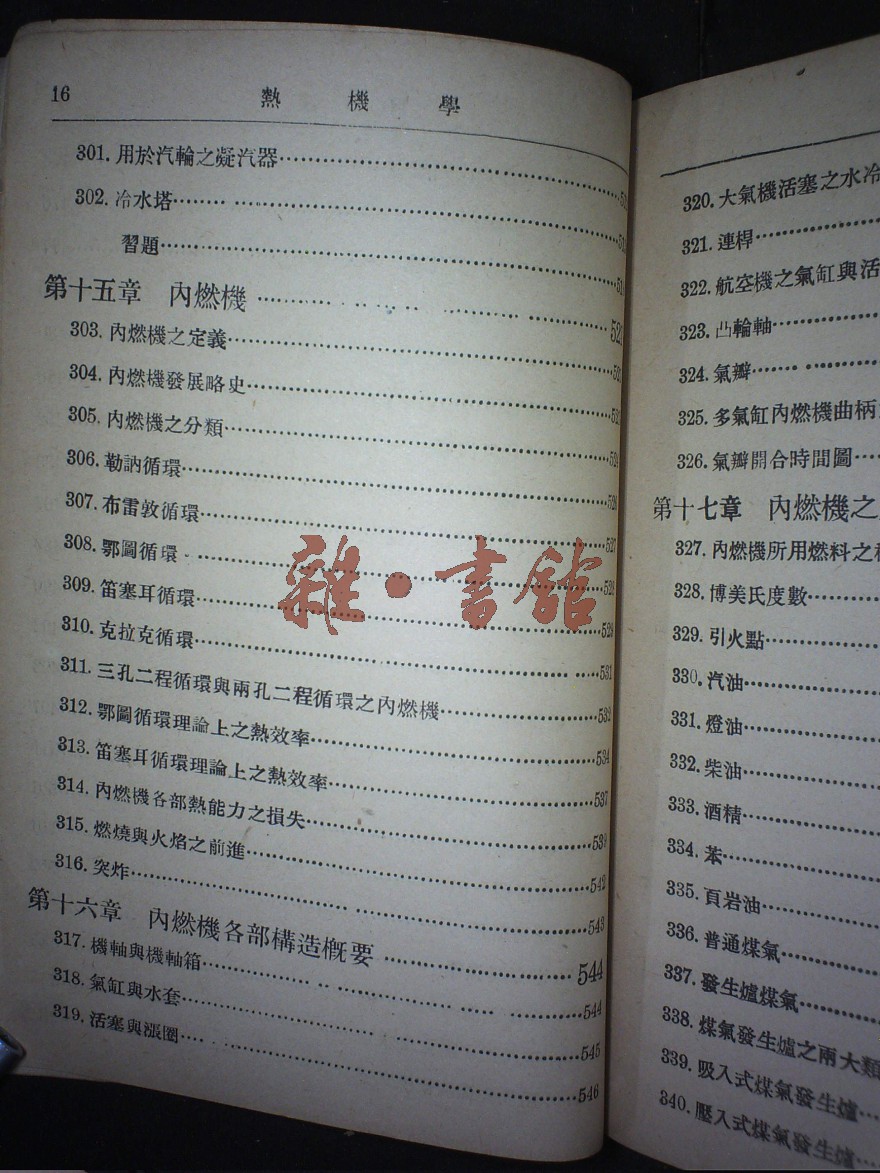 16 熱機學
301. 用於汽輪之凝汽器
302. 冷水塔
習題
第十五章 內燃機
303. 內燃機之定義
304. 內燃機發展略史
305. 內燃機之分類
306. 勒訥循環 526
307. 布雷敦循環 527
308. 鄂圖循環 528
309. 笛塞耳循環 529
310. 克拉克循環 531
311. 三孔二程循環與兩孔二程循環之內燃機 532
312. 鄂圖循環理論上之熱效率 534
313. 笛塞耳循環理論上之熱效率 537
314. 內燃機各部熱能力之損失 539
315. 燃燒與火焰之前進 542
316. 突炸 543
第十六章 內燃機各部構造概要 544
317. 機軸與機軸箱 544
318. 氣缸與水套 545
319. 活塞與漲圈 546
雜·書館
320. 大氣機活塞之水冷
321. 連桿
322. 航空機之氣缸與活
323. 凸輪軸
324. 氣瓣
325. 多氣缸內燃機曲柄
326. 氣瓣開合時間圖
第十七章 內燃機之
327. 內燃機所用燃料之
328. 博美氏度數
329. 引火點
330. 汽油
331. 燈油
332. 柴油
333. 酒精
334. 苯
335. 頁岩油
336. 普通煤氣
337. 發生爐煤氣
338. 煤氣發生爐之兩大類
339. 吸入式煤氣發生爐
340. 壓入式煤氣發生爐